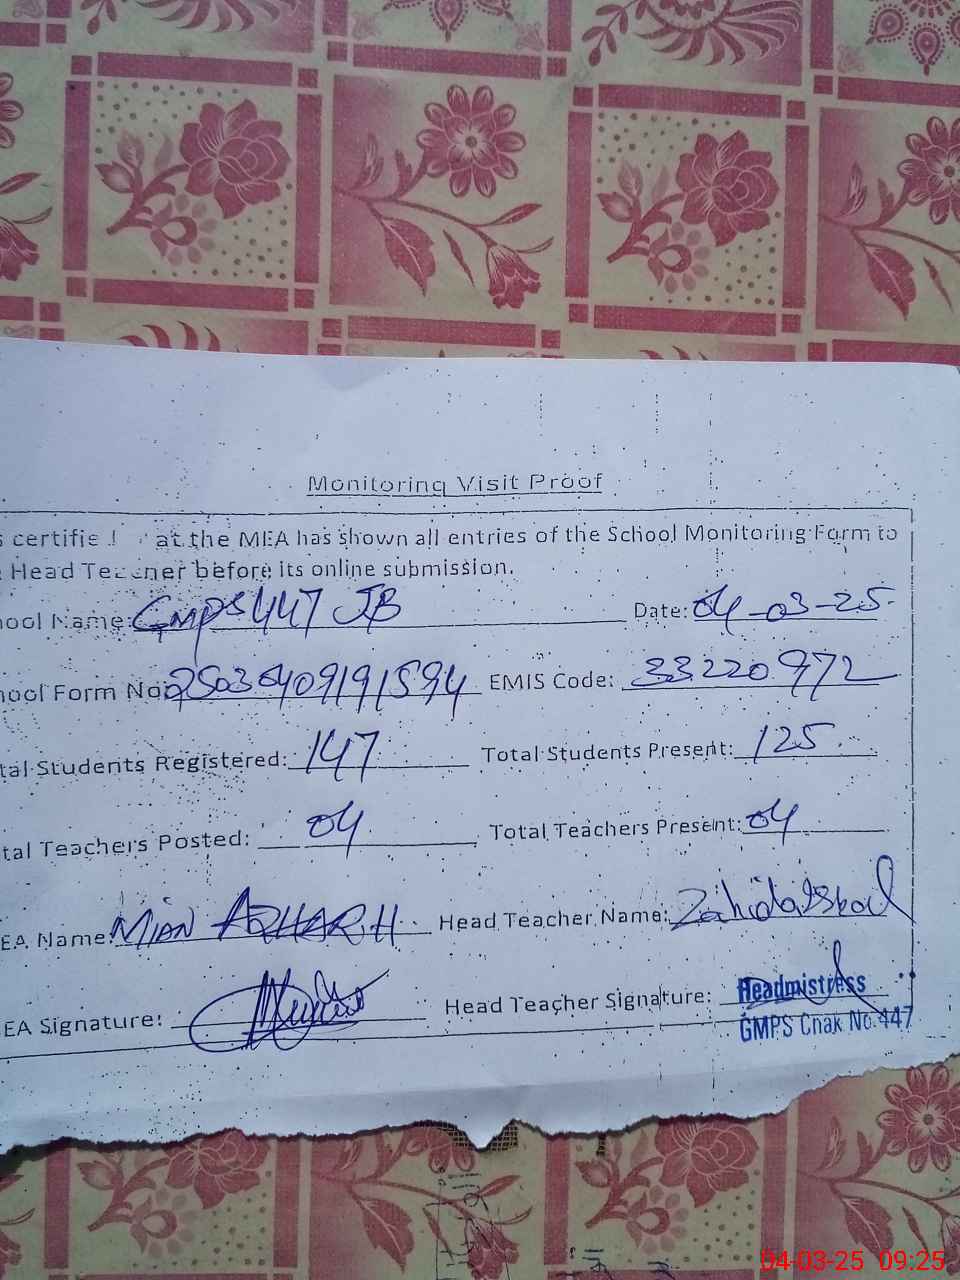 Monitoring Visit Proof
certifie at the MEA has shown all entries of the School Monitoring Form to
Head Teacher before its online submission.
ool Name: GMPS 447 JB Date: 04-03-25
ool Form No: 25030409191594 EMIS Code: 33220972
tal Students Registered: 147 Total Students Present: 125
tal Teachers Posted: 04 Total Teachers Present: 04
EA Name: MIAN AZHAR H Head Teacher Name:
EA Signature: Head Teacher Signature: Headmistress
GMPS Chak No.447
04-03-25 09:25